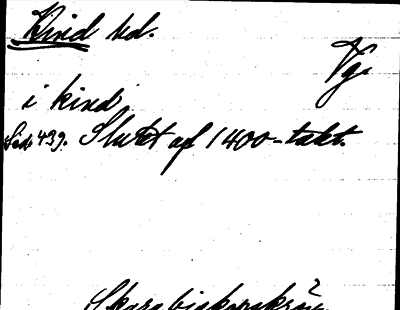 Kind hd.
Vg.
i kind
Sid. 439. Slutet af 1400-talet.
Skarabiskopskrön.